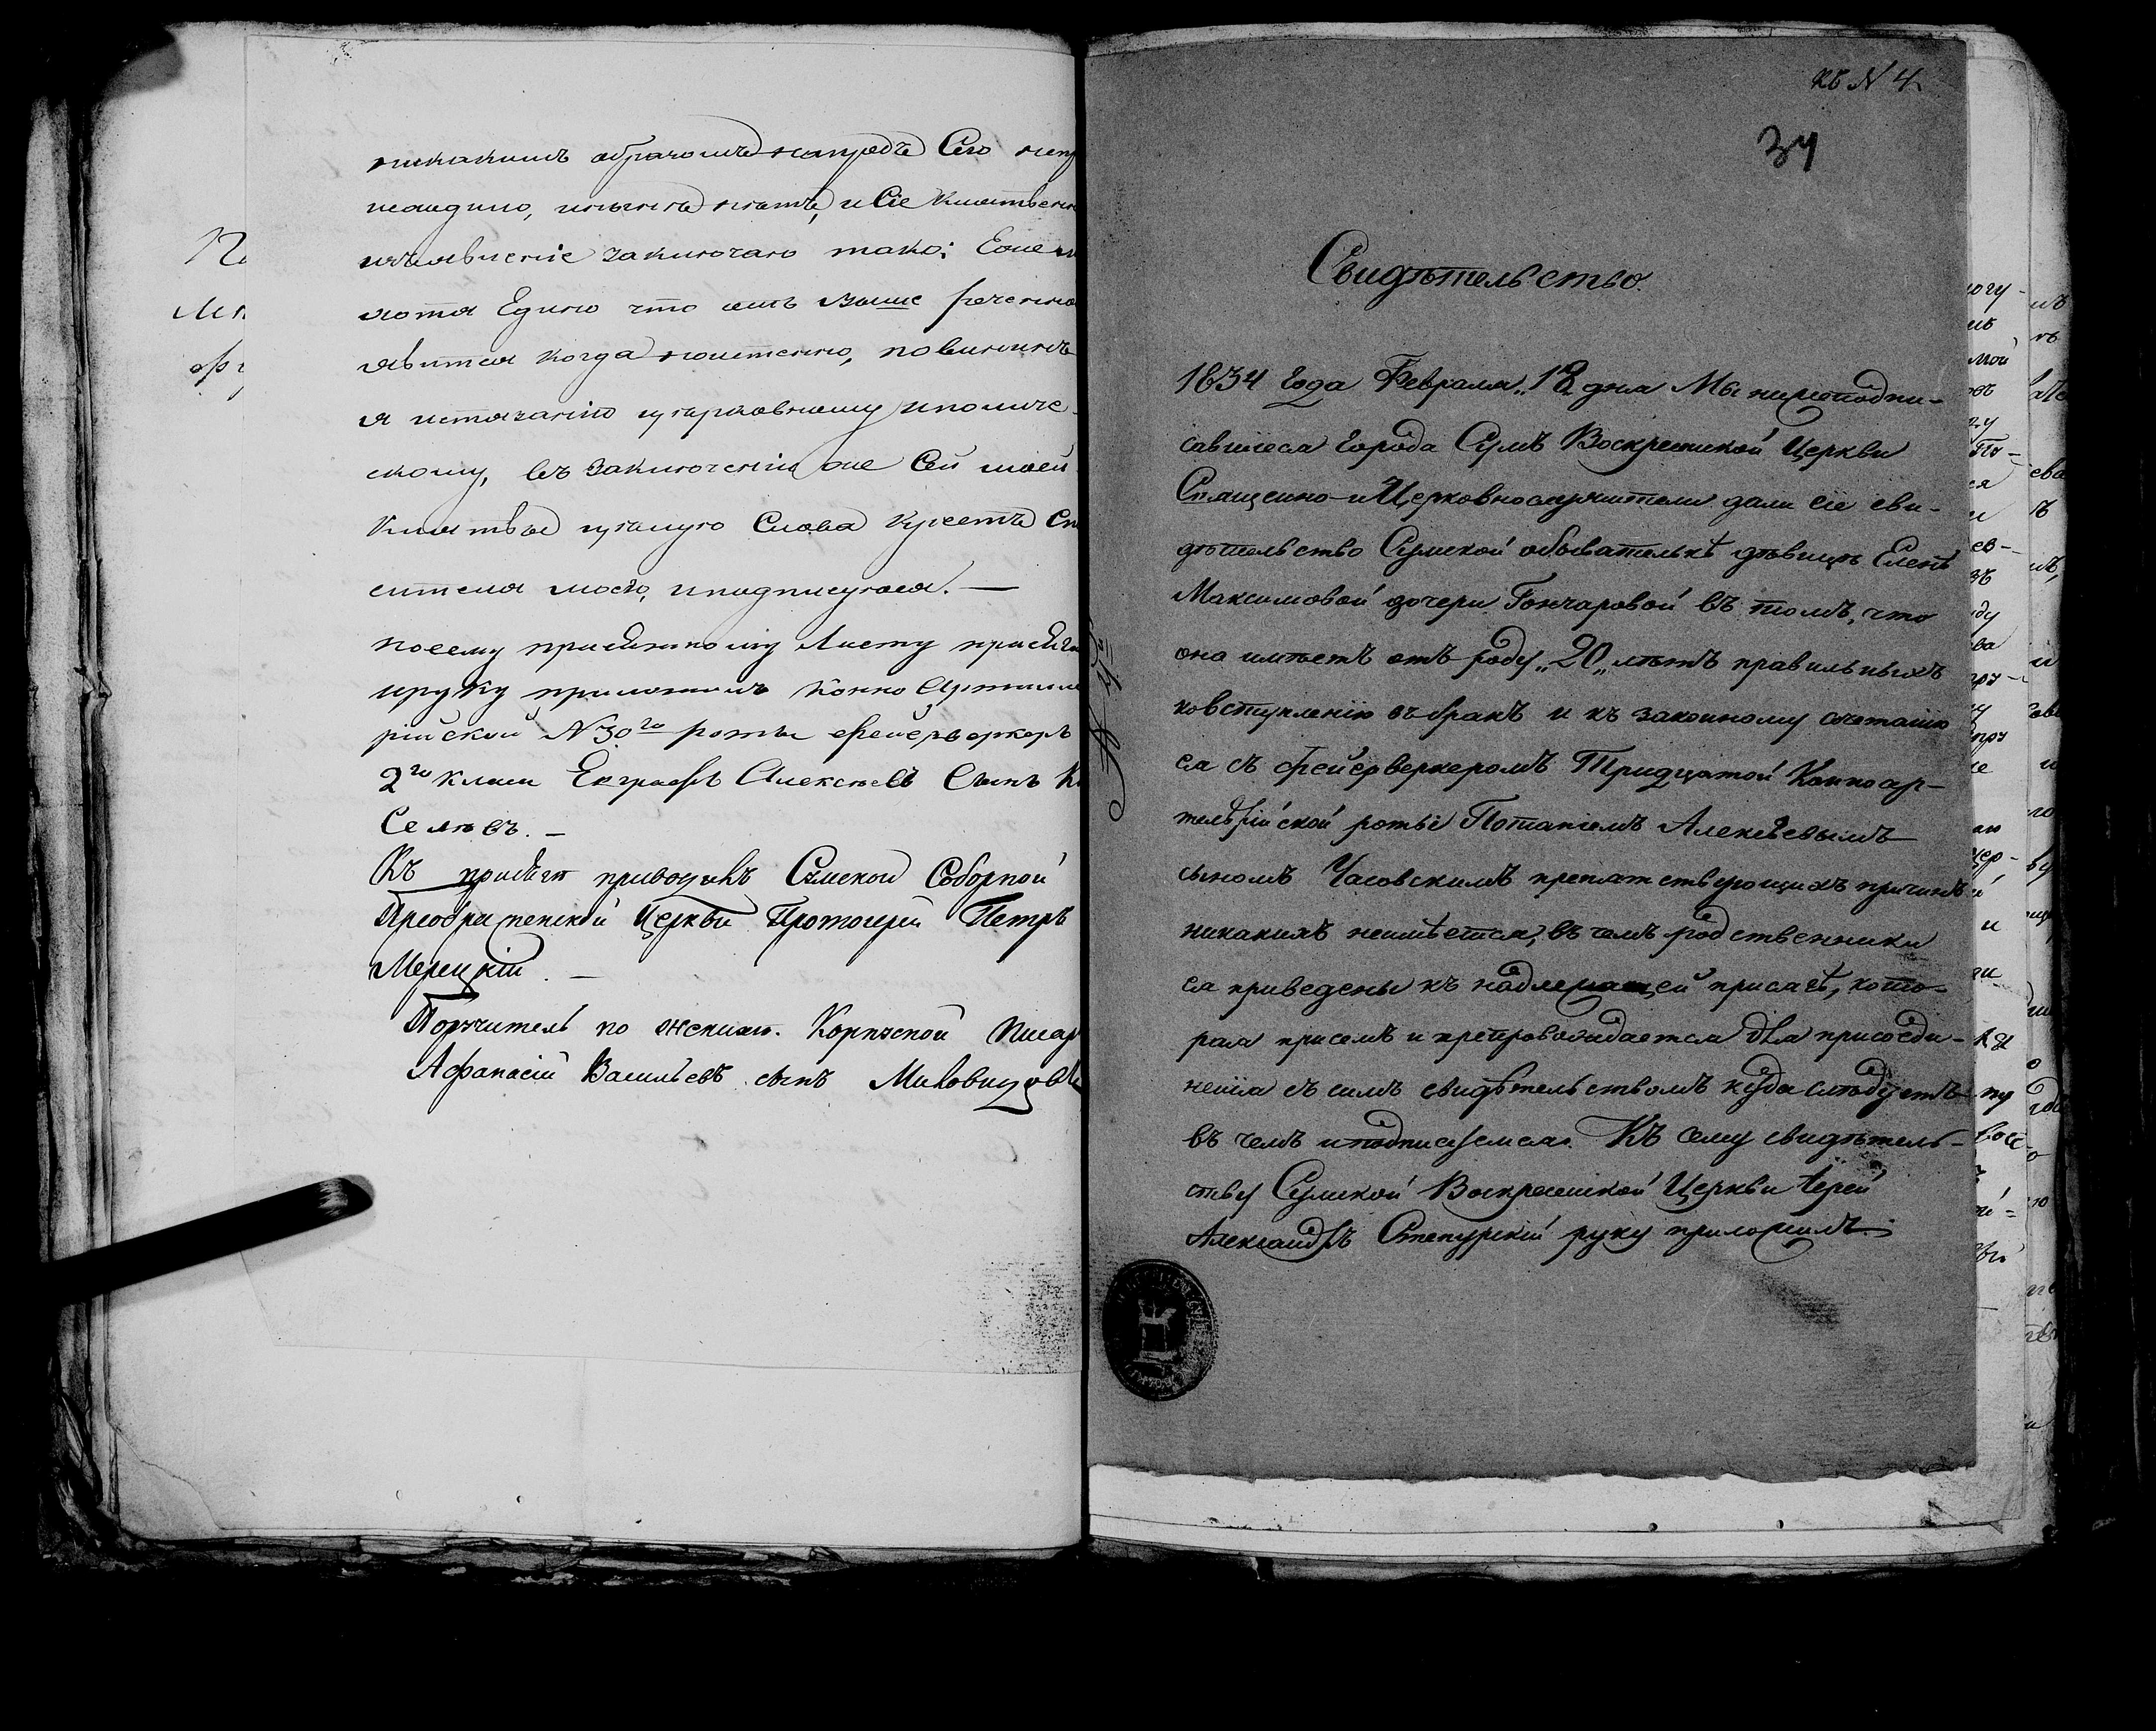 никакимъ образомъ напредъ Сего
неандино, нынѣ нѣтъ, и Сіе Клятвенн
изъявленіе заключаю тако: Еже
хотя Едино что имъ Выше реченно
явится когда поистенно, повиненъ
я истязанію церковному иполиче-
скому, въ заключеніи же Сей моей
Клятвы цѣлую Слова Крестъ Сп
сителя моего, иподписуюся. —
посему присяжному Листу присяга
ируку приложилъ Конно Артилле
рійской N 30го роты фейерверкеръ
2го класа Евграфъ Алексѣевъ Сынъ К
Селевъ. —
Къ присягѣ приводилъ Сумской Соборной
Преображенской Церкви Протоіерей Петръ
Мерецкій. —
Поручитель по женихѣ. Корпусной Писар
Афанасій Васильевъ сынъ Миловидовъ
къ N 4
34
Свидѣтельство.
1834 Года Февраля „18„ дня Мы нижеподпи-
савшіеся Города Сумъ Воскресенской Церкви
Священно-и Церковнослужители дали сіе сви-
дѣтельство Сумской обывателькѣ дѣвицѣ Еленѣ
Максимовой дочери Гончаровой въ томъ, что
она имѣетъ отъ роду „20„ лѣтъ правильныхъ
ковступленію въ бракъ и къ законному сочетанію
ся съ фейерверкеромъ Тридцатой Конноар-
телерійской роты Потапіемъ Алексѣевымъ
сыномъ Часовскимъ препятствующихъ причинъ
никакихъ неимѣется, въ чемъ родственники
ея приведены къ надлежащей присягѣ, кото-
рая присемъ и препровождается для присоеди-
ненія съ симъ свидѣтельствомъ куда слѣдуетъ
въ чемъ иподписуемся. Къ сему свидѣтель-
ству Сумской Воскресенской Церкви Іерей
Александръ Степурскій руку приложилъ.